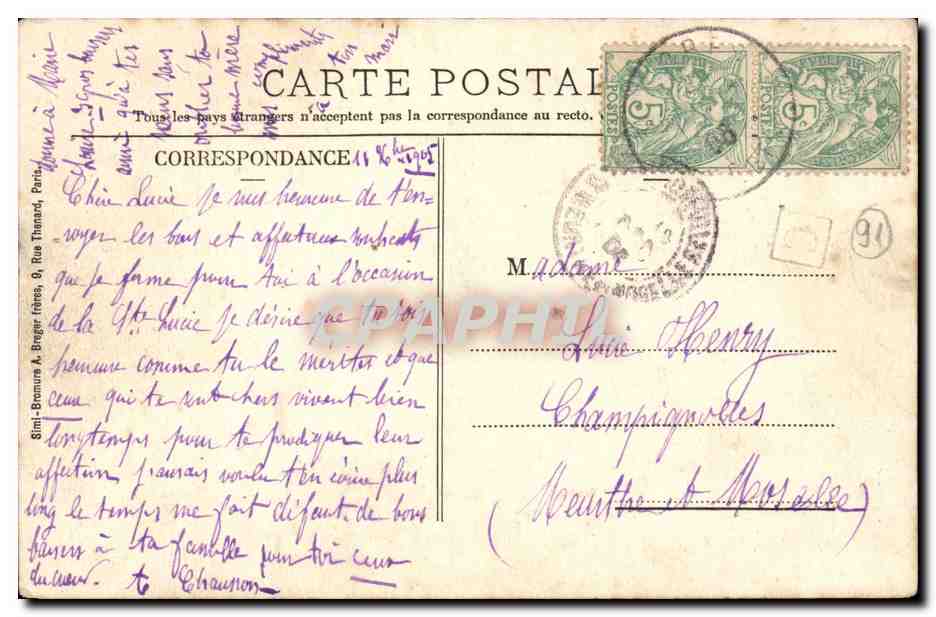 CARTE POSTALE
Tous les pays étrangers n'acceptent pas la correspondance au recto.
CORRESPONDANCE 11 Xbre 1905
Chère Lucie je suis heureuse de t'en-
voyer les bons et affectueux souhaits
que je forme pour toi à l'occasion
de la Ste Lucie je désire que tu sois
heureuse comme tu le merites et que
ceux qui te sont chers vivent bien
longtemps pour te prodiguer leur
affection j'aurais voulu t'en écrire plus
long le temps me fait défaut. de bons
baisers à ta famille pour toi ceux
du cœur. Chausson
à Marie
Louise
ainsi qu'à tes
sans
oublier ta
bonne mère
mes
à ton
mari
Madame
Lucie Henry
Champignolles
(Meurthe et Moselle)
91
5c
POSTES
5c
POSTES
Simi-Bromure A. Breger frères, 9, Rue Thenard, Paris.
CPAPHIL